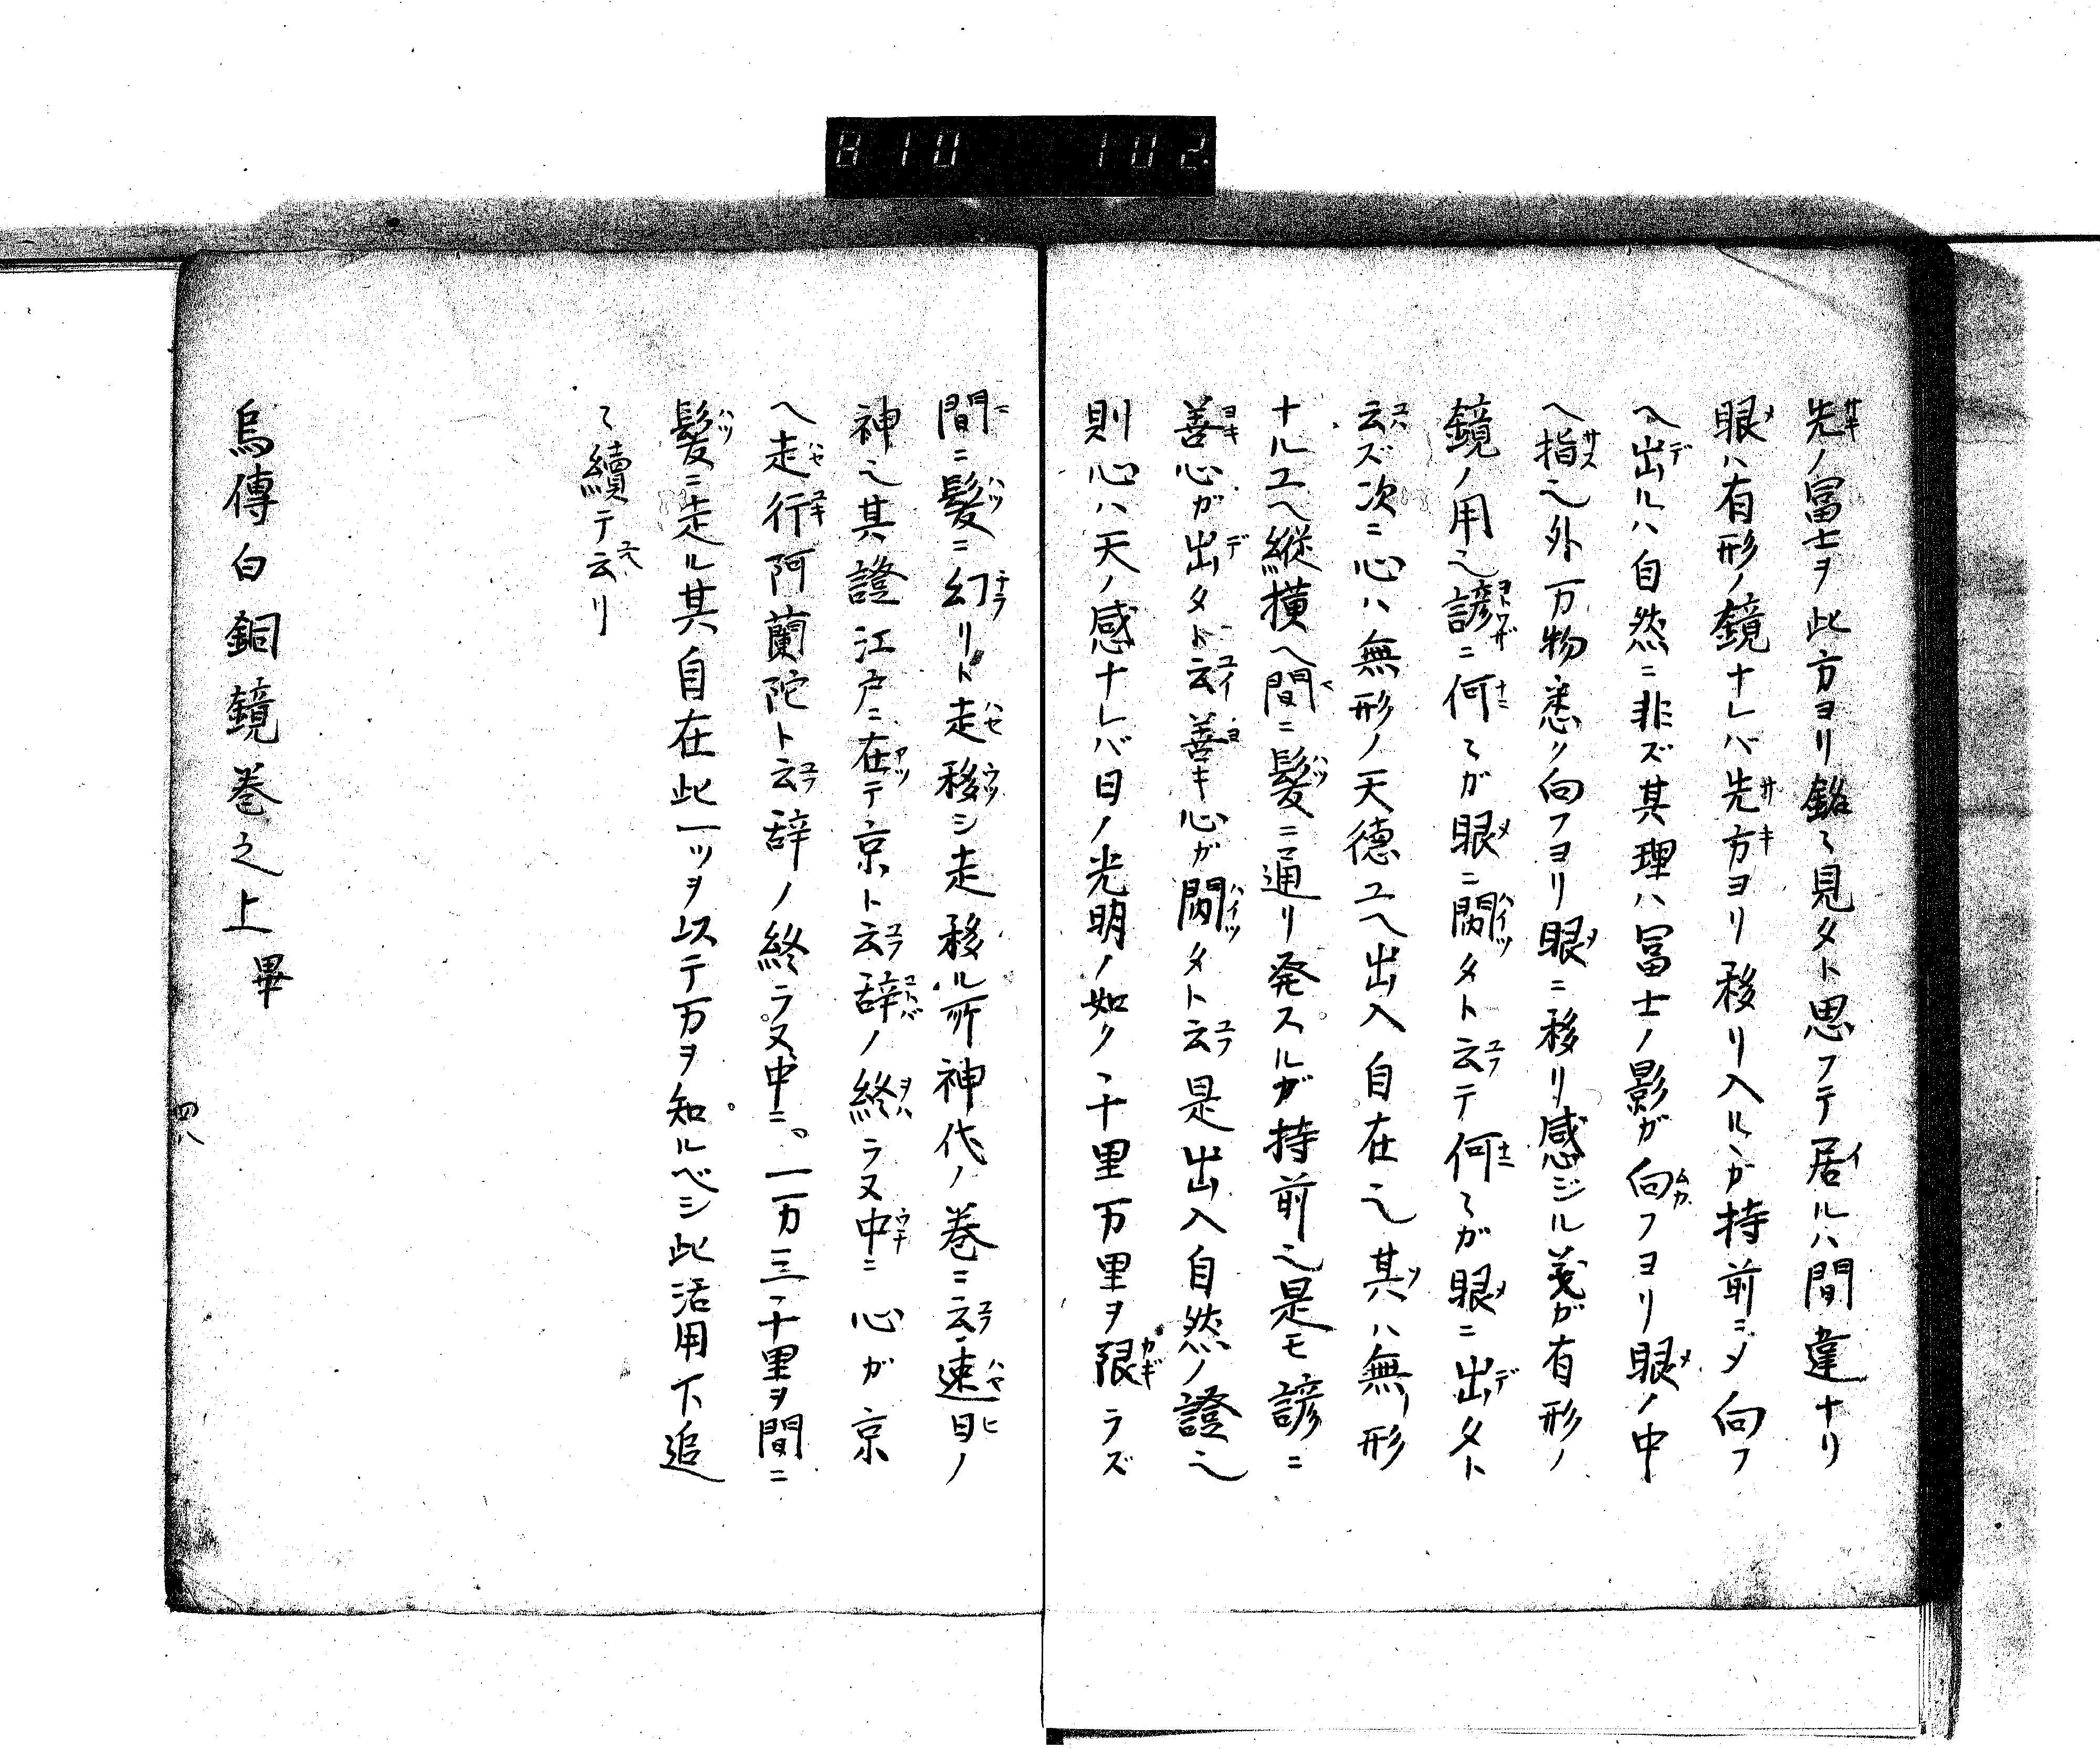 810 102
先ノ冨士ヲ此方ヨリ銘〻見タト思フテ居ルハ間違ナリ
眼ハ有形ノ鏡ナレバ先方ヨリ移リ入ルヽガ持前ニシテ向フ
ヘ出ルハ自然ニ非ズ其理ハ冨士ノ影ガ向フヨリ眼ノ中
ヘ指也外万物悉ク向フヨリ眼ニ移リ感ジル義ガ有形ノ
鏡ノ用也諺ニ何〻ガ眼ニ閖タト云テ何〻ガ眼ニ出タト
云ズ次ニ心ハ無形ノ天徳ユヘ出入自在也其ハ無形
ナルユヘ縦横ヘ間ニ髪ニ通リ発スルガ持前也是モ諺ニ
善心ガ出タト云善キ心ガ閖タト云是出入自然ノ證也
則心ハ天ノ感ナレバ日ノ光明ノ如ク千里万里ヲ限ラズ
間ニ髪ニ幻リト走移シ走移ル所神代ノ巻ニ云速日ノ
神也其證江戸ニ在テ京ト云辞ノ終ラヌ中ニ心ガ京
ヘ走行阿蘭陀ト云辞ノ終ラヌ中ニ一万三千里ヲ間ニ
髪ニ走ル其自在此一ツヲ以テ万ヲ知ルベシ此活用下追
〻續テ云リ
烏傳白銅鏡巻之上 畢
四八